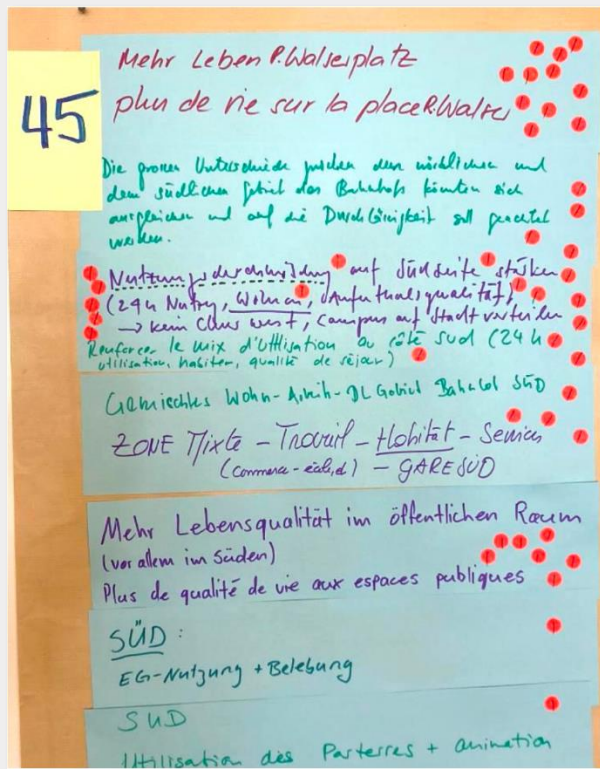 45
Mehr Leben R.Walserplatz
plus de vie sur la place R.Walser
Die grossen Unterschiede zwischen dem nördlichen und
dem südlichen Gebiet des Bahnhofs könnten sich
ausgleichen und auf die Durchlässigkeit soll geachtet
werden.
Nutzungsdurchmischung auf Südseite stärken
(24h Nutzg, Wohnen, Aufenthaltsqualität)
→ kein Cluster west, Campus auf Stadt verteilen
Renforcer le mix d'utilisation au côté sud (24h
utilisation, habiter, qualité de séjour)
Gemischtes Wohn-Arbeit-DL Gebiet Bahnhof SÜD
ZONE Mixte – Travail – Habitat – Services
(commerce - ) – GARE SÜD
Mehr Lebensqualität im öffentlichen Raum
(vor allem im Süden)
Plus de qualité de vie aux espaces publiques
SÜD:
EG-Nutzung + Belebung
SUD
Utilisation des Parterres + animation